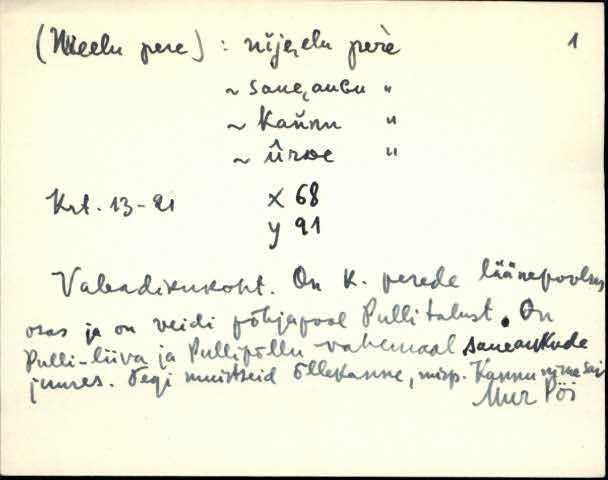 (Nieelu pere) : nije,elu perè 1
~ saue,augu "
~ Kaňnu "
~ ûrwe "
Krt. 13-21 x 68
y 91
Vabadikukoht. On K. perede läänepoolsus
osas ja on veidi põhjapool Pullitalust. On
Pulli-liiva ja Pullipõllu vahemaal saueaukude
juures. Tegi muistseid õllekanne, misp. Kannu nime sai
Mur Pöi